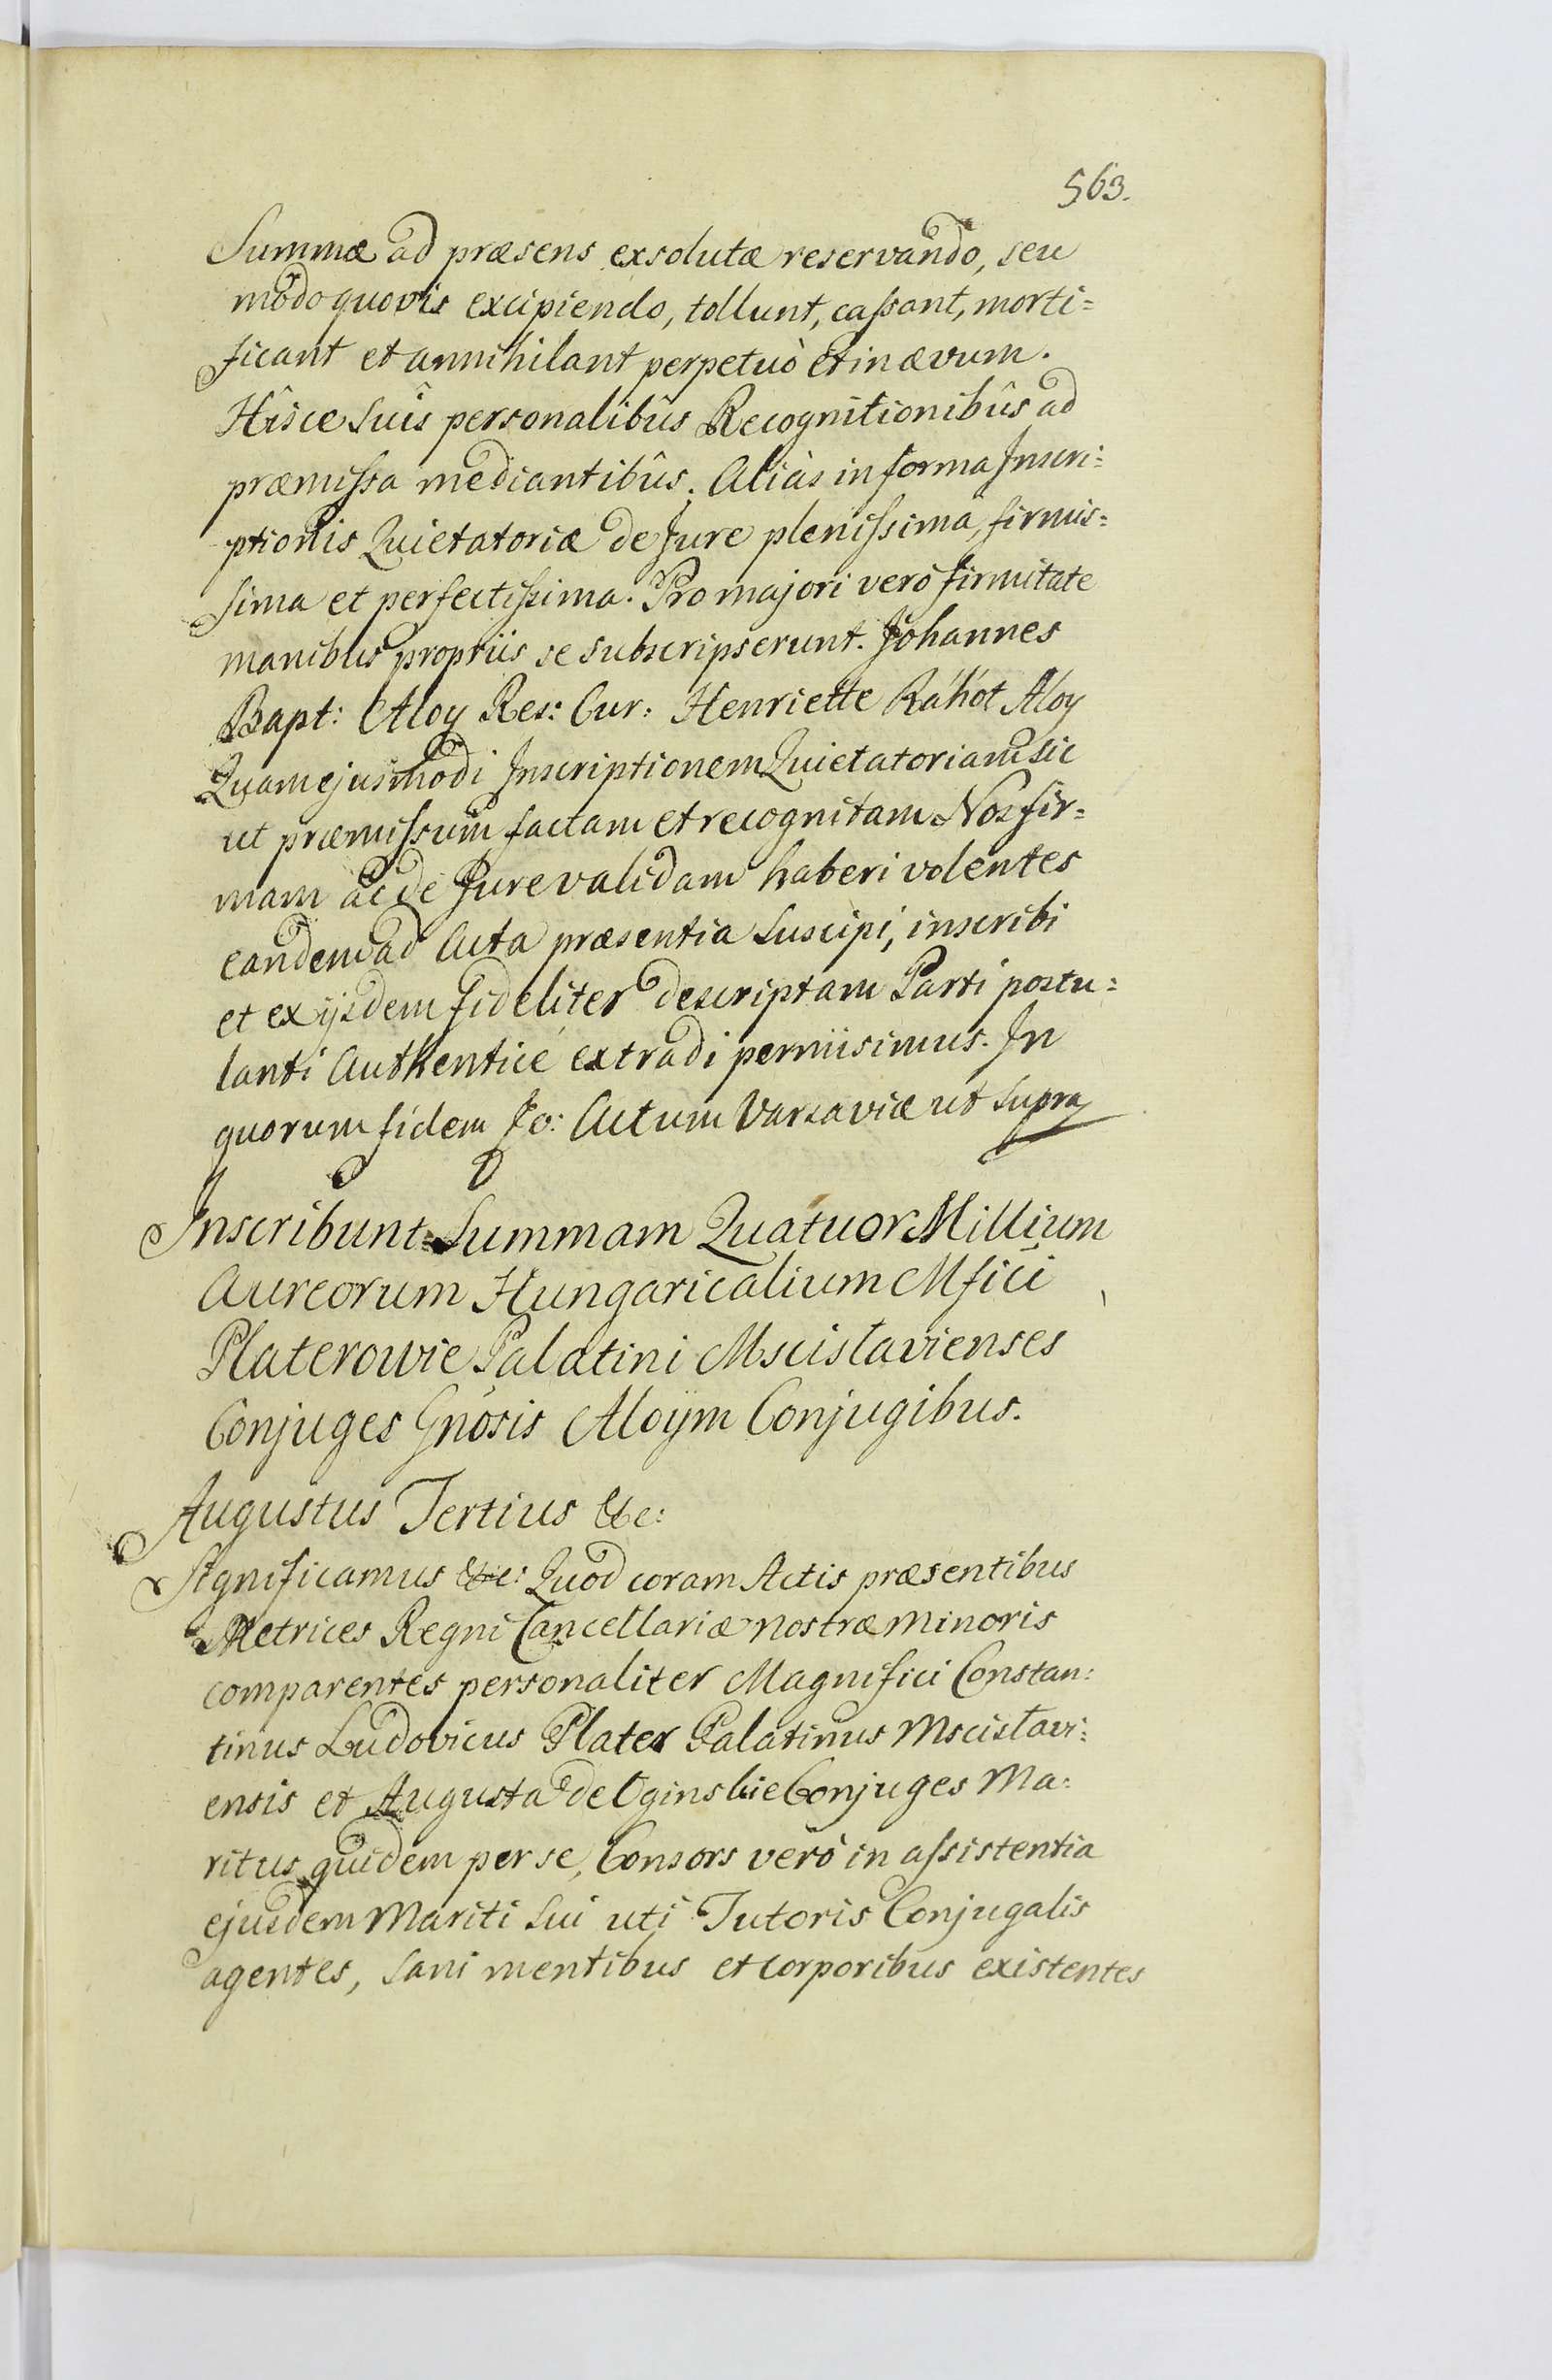 563.
Summæ ad præsens exsolutæ reservando, seu
modo quovis excipiendo, tollunt, cassant, morti=
ficant et annihilant perpetuò et in ævum.
Hîsce suîs personalibûs Recognitionibûs ad
præmissa mediantibûs. Aliàs in forma Inscri=
ptionis Quietatoriæ de Jure plenissima, firmis=
sima et perfectissima. Pro majori verò firmitate
manibus propriis se subscripserunt. Johannes
Bapt: Aloy Res: Cur: Henriette Aloy
Quam ejusmodi Inscriptionem Quietatoriam sic
ut præmissum factam et recognitam Nos fir=
mam ac de Jure validam haberi volentes
eandem ad Acta præsentia suscipi, inscribi
et ex ijsdem fideliter descriptam Parti postu=
lanti Authenticè extradi permisimus. In
quorum fidem Actum Varsaviæ ut supra
Inscribunt Summam Quatuor Millium
Aureorum Hungaricalium Mfici
Platerowie Palatini Mscislavienses
Conjuges Gnosis Aloym Conjugibus.
Augustus Tertius &c:
Significamus &c: Quod coram Actis præsentibus
Metrices Regni Cancellariæ nostræ minoris
comparentes personaliter Magnifici Constan:
tinus Ludovicus Plater Palatinus Mscislavi:
ensis et Augusta de Oginskie Conjuges Ma:
ritus quidem per se, Consors verò in assistentia
ejusdem Mariti sui uti Tutoris Conjugalis
agentes, sani mentibus et corporibus existentes